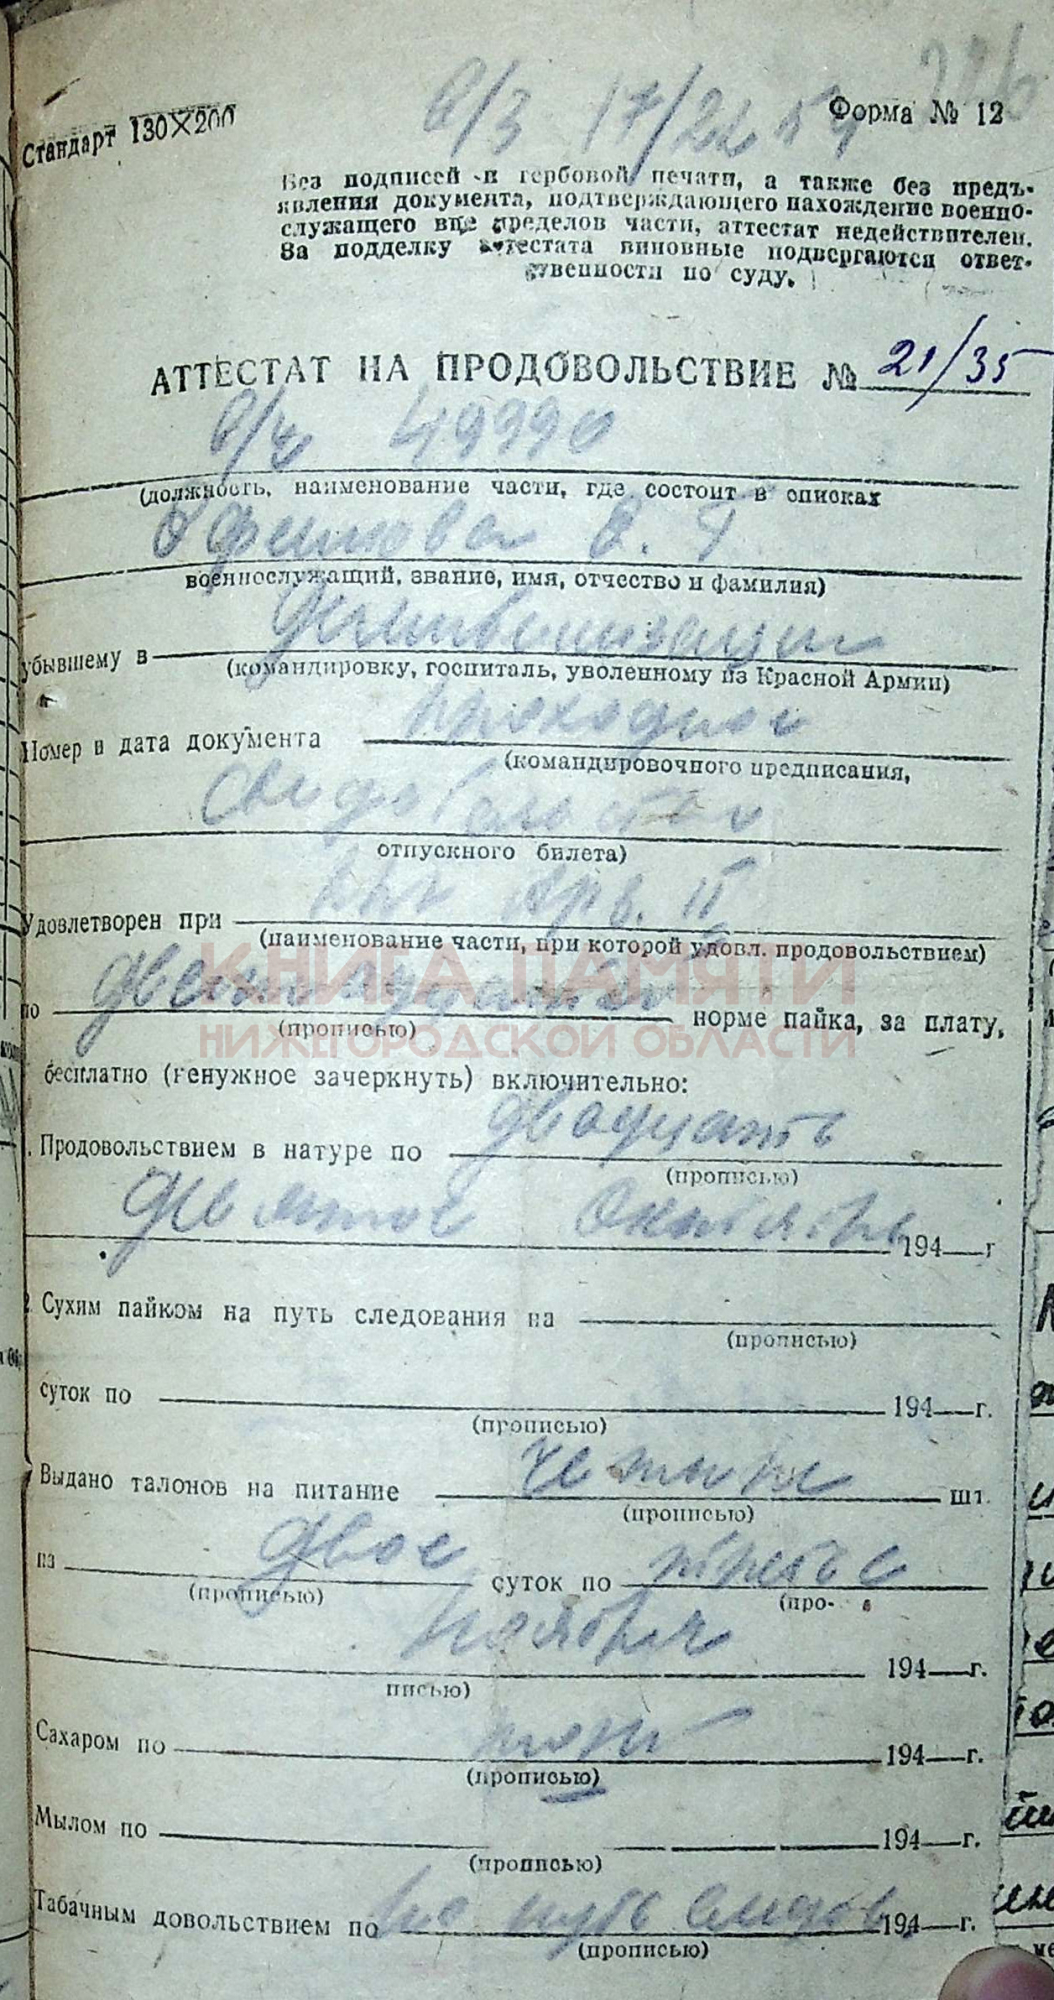 Стандарт 130×200
Форма № 12
Без подписей и гербовой печати, а также без предъ-
явления документа, подтверждающего нахождение военно-
служащего вне пределов части, аттестат недействителен.
За подделку аттестата виновные подвергаются ответ-
ственности по суду.
АТТЕСТАТ НА ПРОДОВОЛЬСТВИЕ № 21/35
в/ч 49990
(должность, наименование части, где состоит в списках
военнослужащий, звание, имя, отчество и фамилия)
убывшему в
(командировку, госпиталь, уволенному из Красной Армии)
Номер и дата документа проходное
(командировочного предписания,
отпускного билета)
Удовлетворен при
(наименование части, при которой удовл. продовольствием)
по норме пайка, за плату,
(прописью)
бесплатно (ненужное зачеркнуть) включительно:
1. Продовольствием в натуре по двадцать
(прописью)
девятое Октября 194 г
2. Сухим пайком на путь следования на
(прописью)
суток по 194 г.
(прописью)
Выдано талонов на питание четыре шт.
(прописью)
на двое суток по третье
(прописью) (про-
Ноября 194 г.
писью)
Сахаром по 194 г.
(прописью)
Мылом по 194 г.
(прописью)
Табачным довольствием по на путь следов 194 г.
(прописью)
КНИГА ПАМЯТИ
НИЖЕГОРОДСКОЙ ОБЛАСТИ